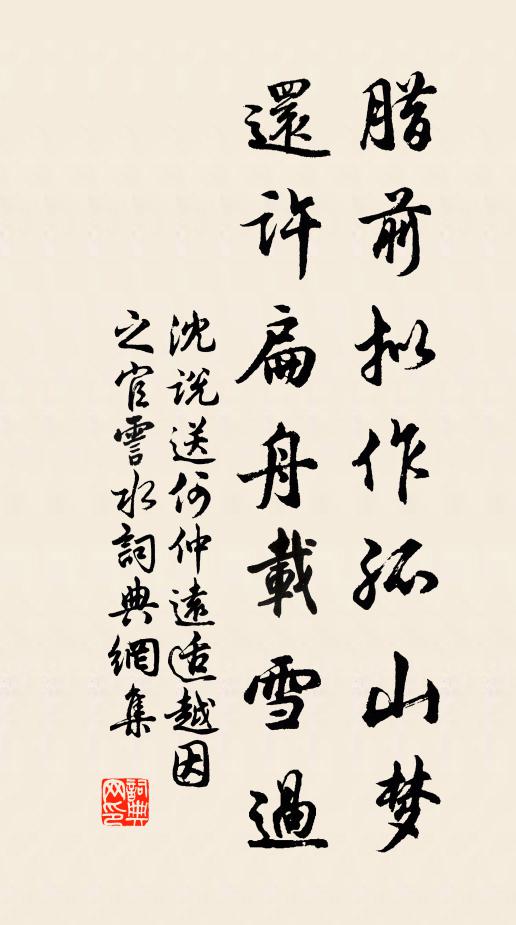 腊前拟作孤山梦
還许扁舟載雪過
沈说送何仲遠适越因
之官霅水詞典網集
詞典网印